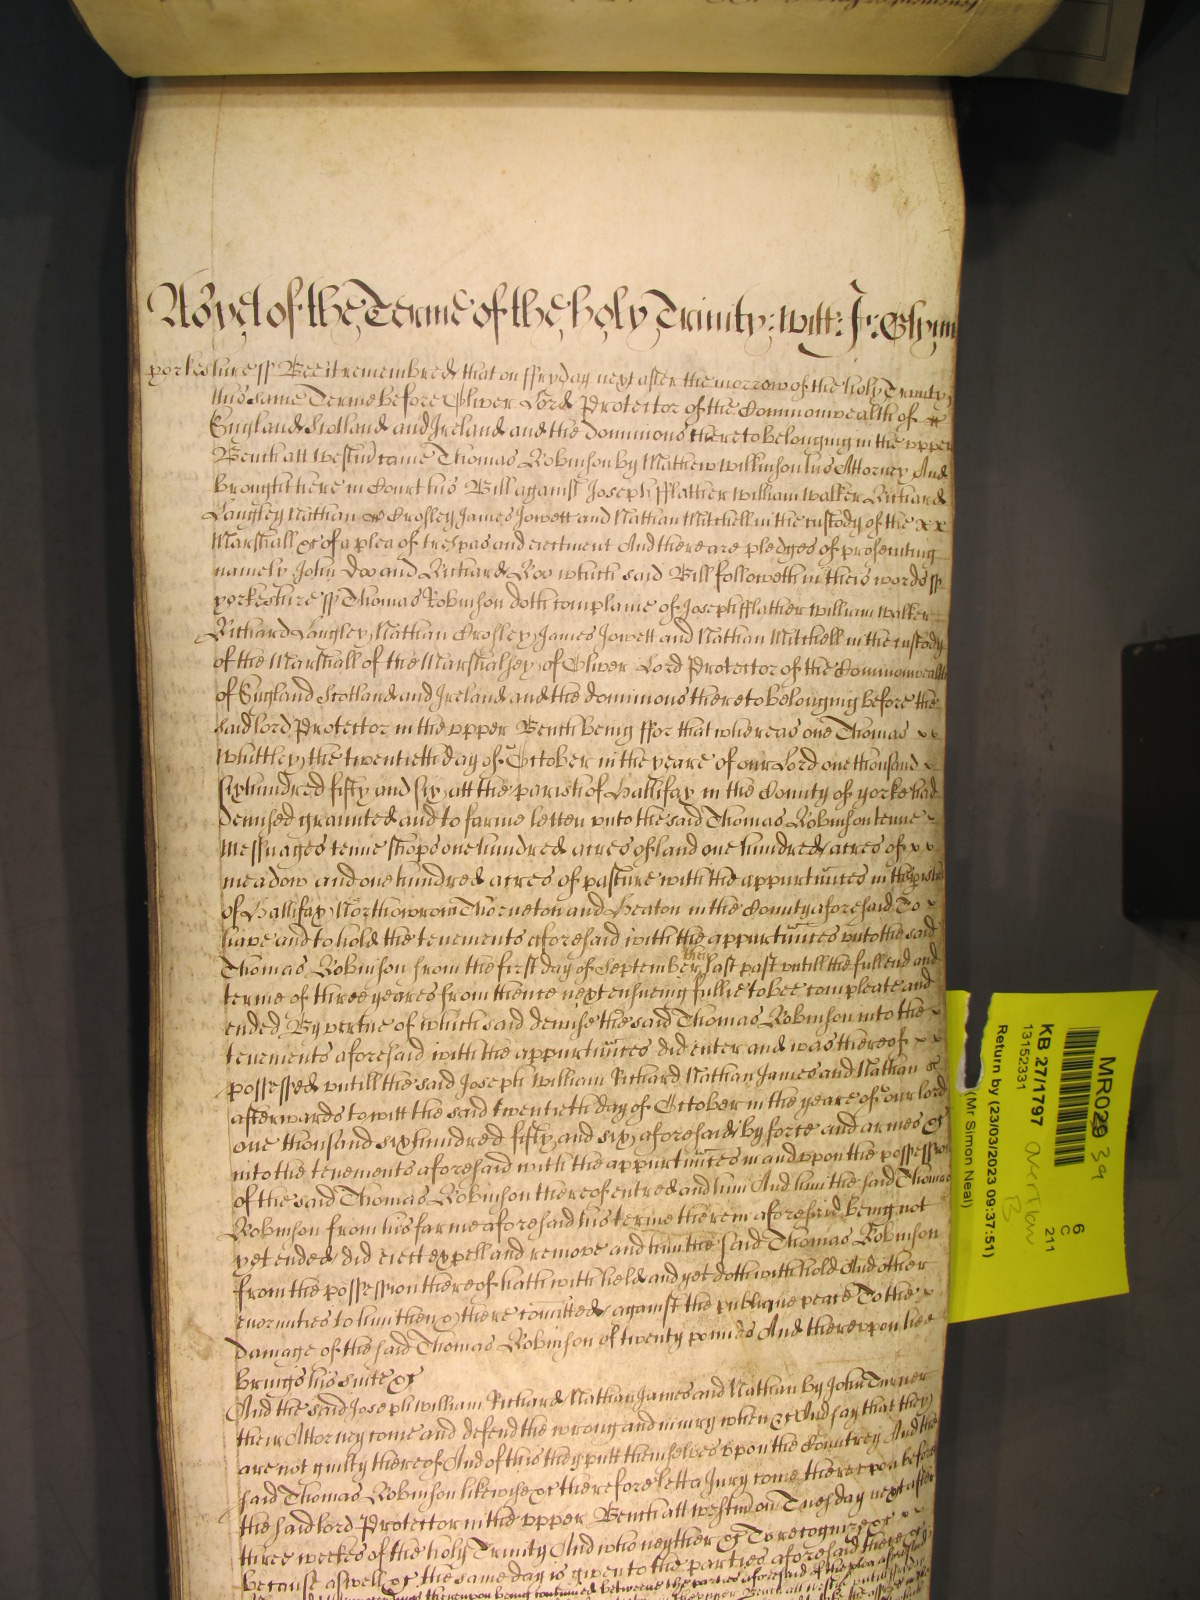 As yet of the Terme of the holy Trinity: witt: Jo: Glynn
yorkeshire ss Bee it remembred that on ffryday next after the morrow of the holy Trinity
this same Terme before Oliver Lord Protector of the Commonwealth of
England Scotland and Ireland and the dominions thereto belonging in the upper
Bench att Westm came Thomas Robinson by Mathew Wilkinson his Attorney And
brought here in Court his Bill against Joseph fflather William Walker Richard
Langley Nathan Crosley James Jowett and Nathan Mitchell in the custody of the x x
Marshall &c of a plea of trespas and eiectment And there are pledges of prosecuting
namely John Doo and Richard Roo which said Bill followeth in theis words ss
yorkeshire ss Thomas Robinson doth complaine of Joseph fflather William Walker
Richard Langley Nathan Crosley James Jowett and Nathan Mitchell in the custody
of the Marshall of the Marshalsey of Oliver Lord Protector of the Commonwealth
of England Scotland and Ireland and the dominions thereto belonging before the
said lord Protector in the upper Bench being ffor that whereas one Thomas x x
Whittley the twentieth day of October in the yeare of our Lord one thousand x
six hundred fifty and six att the parish of Hallifax in the County of yorke had
demised graunted and to farme letten unto the said Thomas Robinson tenne x
messuages tenne shops one hundred acres of land one hundred acres of x x
meadow and one hundred acres of pasture with the appurtunces in the parishes
of Hallifax Northowrom Thorneton and Heaton in the County aforesaid To x
have and to hold the tenements aforesaid with the appurtunces unto the said
Thomas Robinson from the first day of September then last past untill the full end and
terme of three yeares from thence next ensueing fullie to bee compleate and
ended By vertue of which said demise the said Thomas Robinson into the x
tenements aforesaid with the appurtunces did enter and was thereof x x
possessed untill the said Joseph William Richard Nathan James and Nathan
afterwards to witt the said twentieth day of October in the yeare of our lord
one thousand six hundred fifty and six aforesaid by force and armes &c
into the tenements aforesaid with the appurtunces in and upon the possession
of the said Thomas Robinson thereof entred and him And him the said Thomas
Robinson from his farme aforesaid his terme therein aforesaid being not
yet ended did eiect expell and remove and him the said Thomas Robinson
from the possession thereof hath with held and yet doth with hold And other
enormities to him then & there comitted against the publique peace To the x
damage of the said Thomas Robinson of twenty pounds And thereupon hee
brings his suite &c
And the said Joseph William Richard Nathan James and Nathan by John Turner
their Attorney come and defend the wrong and iniury when &c And say that they
are not guilty thereof And of this they putt themselves upon the Countrey And the
said Thomas Robinson likewise &c therefore lett a Jury come thereupon before
the said lord Protector in the upper Bench att Westm on Tuesday next after
three weekes of the holy Trinity And who neyther &c To recognize &c x x
because aswell &c the same day is given to the parties aforesaid there &c
thereupon being continued betweene the parties aforesaid of the plea aforesaid
MR029 39
KB 27/1797
13152331
Overflow
B
6
C
211
Return by (23/03/2023 09:37:51)
(Mr Simon Neal)